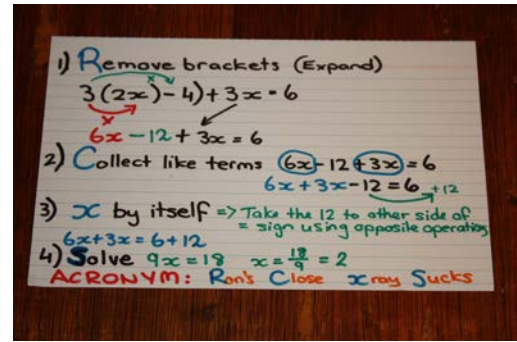 1) Remove brackets (Expand)
3(2x)-4)+3x = 6
6x - 12 + 3x = 6
2) Collect like terms 6x - 12 + 3x = 6
6x + 3x - 12 = 6 +12
3) x by itself => Take the 12 to other side of
= sign using opposite operation
6x+3x = 6+12
4) Solve 9x = 18 x = 18/9 = 2
ACRONYM: Ron's Close xray Sucks